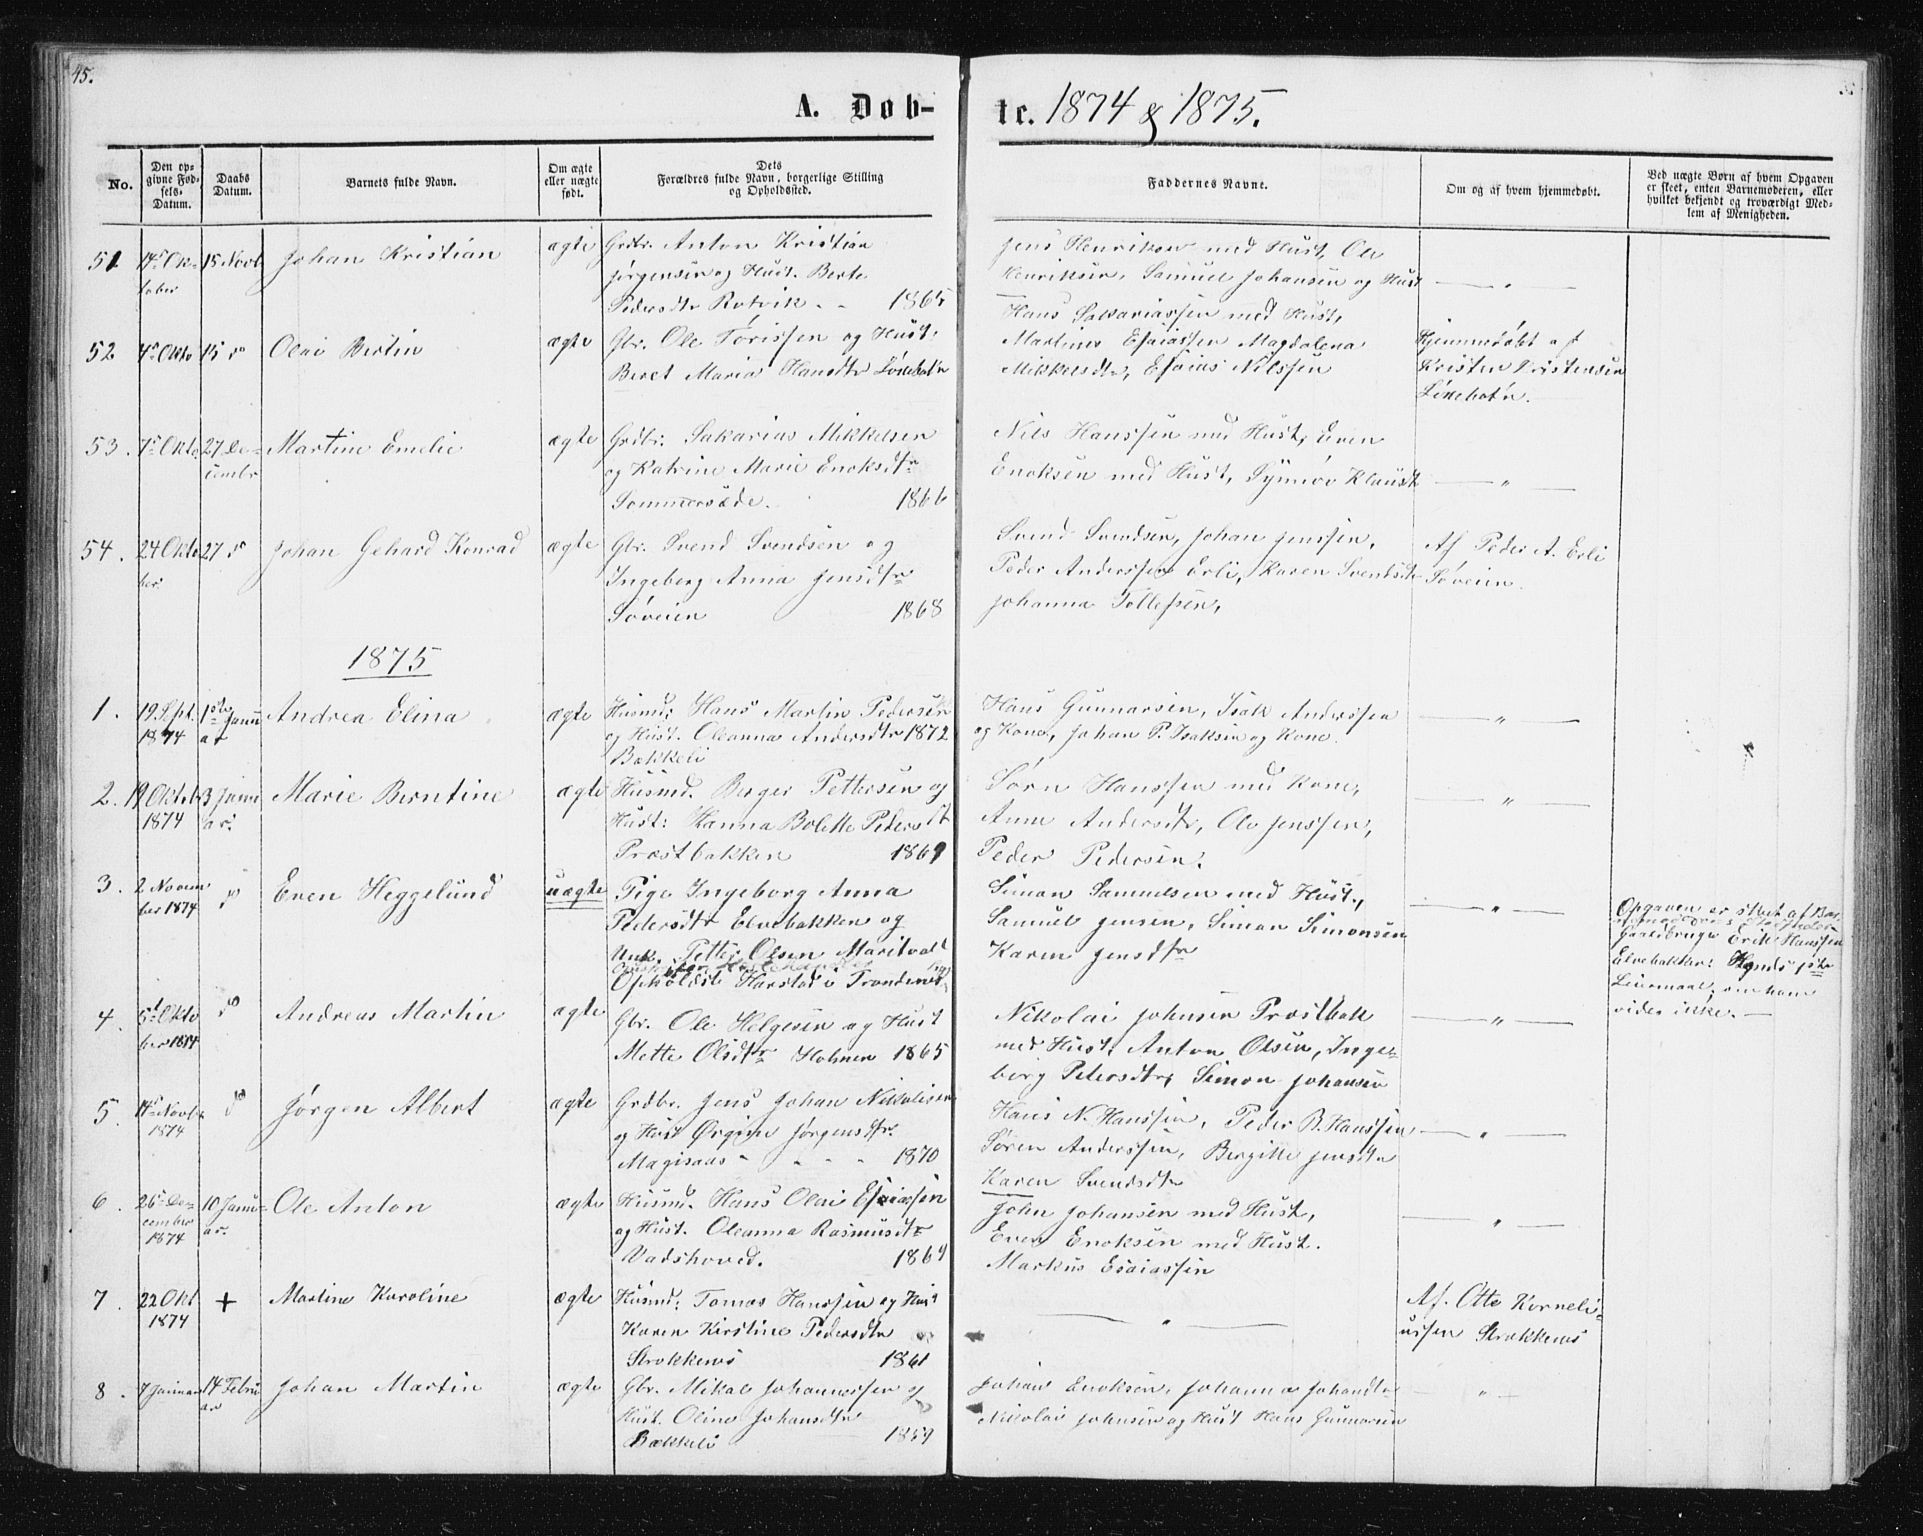 45.
A. Døb-
te. 1874 & 1875.
No.
Den op-
givne Fød-
sels-
Datum.
Daabs
Datum.
Barnets fulde Navn.
Om ægte
eller uægte
født.
Dets
Forældres fulde Navn, borgerlige Stilling
og Opholdssted.
Faddernes Navne.
Om og af hvem hjemmedøbt.
Ved uægte Børn af hvem Opgaven
er skeet, enten Barnemoderen, eller
hvilket bekjendt og troværdigt Med-
lem af Menigheden.
51 14de Ok- 15 Novb Johan Kristian ægte Grdbr. Anton Kristian
tober Jørgensen og Hust. Berte
Pedersdtr Rotvik 1865
Jens Henriksen med Hust, Ole
Henriksen, Samuel Johansen og Hust — " —
52 4de Okto 15 do Olai Bertin ægte Gbr. Ole Tørissen og Hust.
Beret Maria Hansdtr Løksebotn
Hans Sakariassen med Hust,
Martines Esaiassen Magdalena
Mikkelsdtr, Esaias Nilssen
Hjemmedøbt af
Kristen Kristensen
Løksebotn.
53. 7de Okto 27 De- Martine Emelie ægte Grdbr. Sakarias Mikkelsen
cembr og Katrine Marie Enoksdtr
Sommersæde. 1866
Nils Hanssen med Hust, Even
Enoksen med Hust, Synnøv Klausdtr — " —
54. 24 Okto 27 do Johan Gehard Konrad ægte Gbr. Svend Svendsen og
ber Ingeborg Anna Jensdtr
Søveien 1868
Svend Svendsen, Johan Jenssen,
Peder Anderssen Erli, Karen Svendsdtr
Johanna Tollefsen,
Af Peder A. Erli
Søveien.
1875
1. 19 Spt. 1ste Janu Andrea Elina ægte Husmd: Hans Martin Pedersen
1874 ar og Hust. Oleanna Andersdtr 1872
Bakkeli
Hans Gunnarsen, Isak Anderssen
og Kone, Johan P. Isaksen og Kone. — " —
2. 19 Oktob 3 Janu Marie Berntine ægte Husmd. Berger Pettersen og
1874 ar. Hust: Hanna Bolette Pedersdtr
Præstbakken 1869
Sørn Hanssen med Kone,
Anne Andersdtr, Ole Jenssen,
Peder Pedersen. — " —
3. 2 Novem do Even Heggelund uægte Pige Ingeborg Anna
ber 1874 Pedersdtr Elvebakken og
Unk. Petter Olsen Maritvold
Opholdst Harstad i Trondenes
Simon Samuelsen med Hust.,
Samuel Jensen, Simon Simonsen
Karen Jensdtr — " —
Opgaven er skeet af Bar-
Gaardbruger Erik Hanssen
Elvebakken: Hendes 1ste
Leiermaal, om ham
vides ikke. —
4. 5te Okto do Andreas Martin ægte Gbr. Ole Helgesen og Hust
ber 1874 Mette Olsdtr Holmen 1865
Nikolai Johnsen Prostbak
med Hust, Anton Olsen, Inge-
borg Petersdtr, Simon Johansen — " —
5. 14de Novbr do Jørgen Albert ægte Grdbr. Jens Johan Nikolisen
1874 og Hust Ørgine Jørgensdtr.
Magisaas 1870
Hans N. Hanssen, Peder B. Hanssen
Søren Anderssen, Bergitte Jensdtr
Karen Svendsdtr — " —
6. 26de De- 10 Janu- Ole Anton ægte Husmd. Hans Olai Esaiassen
cember ar. og Hust. Oleanna Rasmusdtr
1874 Vadshoved. 1869
John Johansen med Hust,
Even Enoksen med Hust.
Markus Esaiassen — " —
7. 22 Okt + Martine Karoline ægte Husmd: Tomas Hanssen og Hust
1874 Karen Kirstine Pedersdtr
Strokkenes 1861
— " —
Af. Otto Korneli-
ussen Strokkenes
8. 7 Januar 14 Febru Johan Martin ægte Gbr. Mikal Johannessen og
ar Hust. Oline Johansdtr
Bakkeli 1859
Johan Enoksen, Johanna Johansdtr
Nikolai Johnsen og Hust Hans Gunnarsen — " —